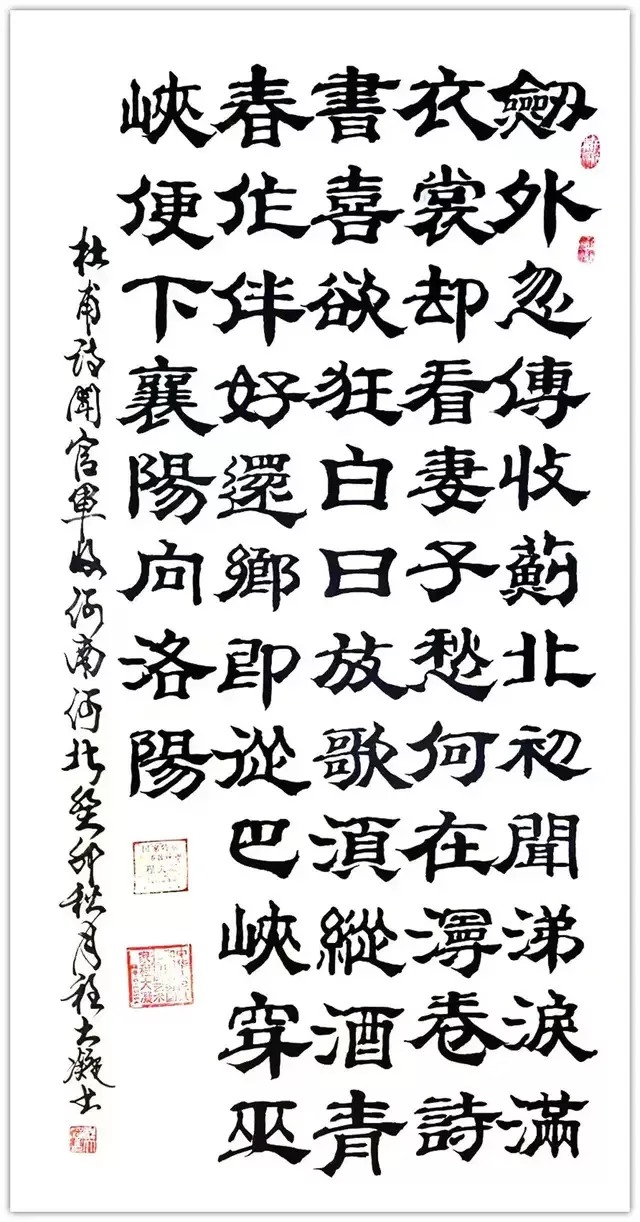 劒外忽傳收薊北初聞涕淚滿
衣裳却看妻子愁何在漫卷詩
書喜欲狂白日放歌湏縱酒青
春作伴好還鄉即從巴峽穿巫
峽便下襄陽向洛陽
杜甫詩聞官軍收河南河北癸卯秋月程大凝書